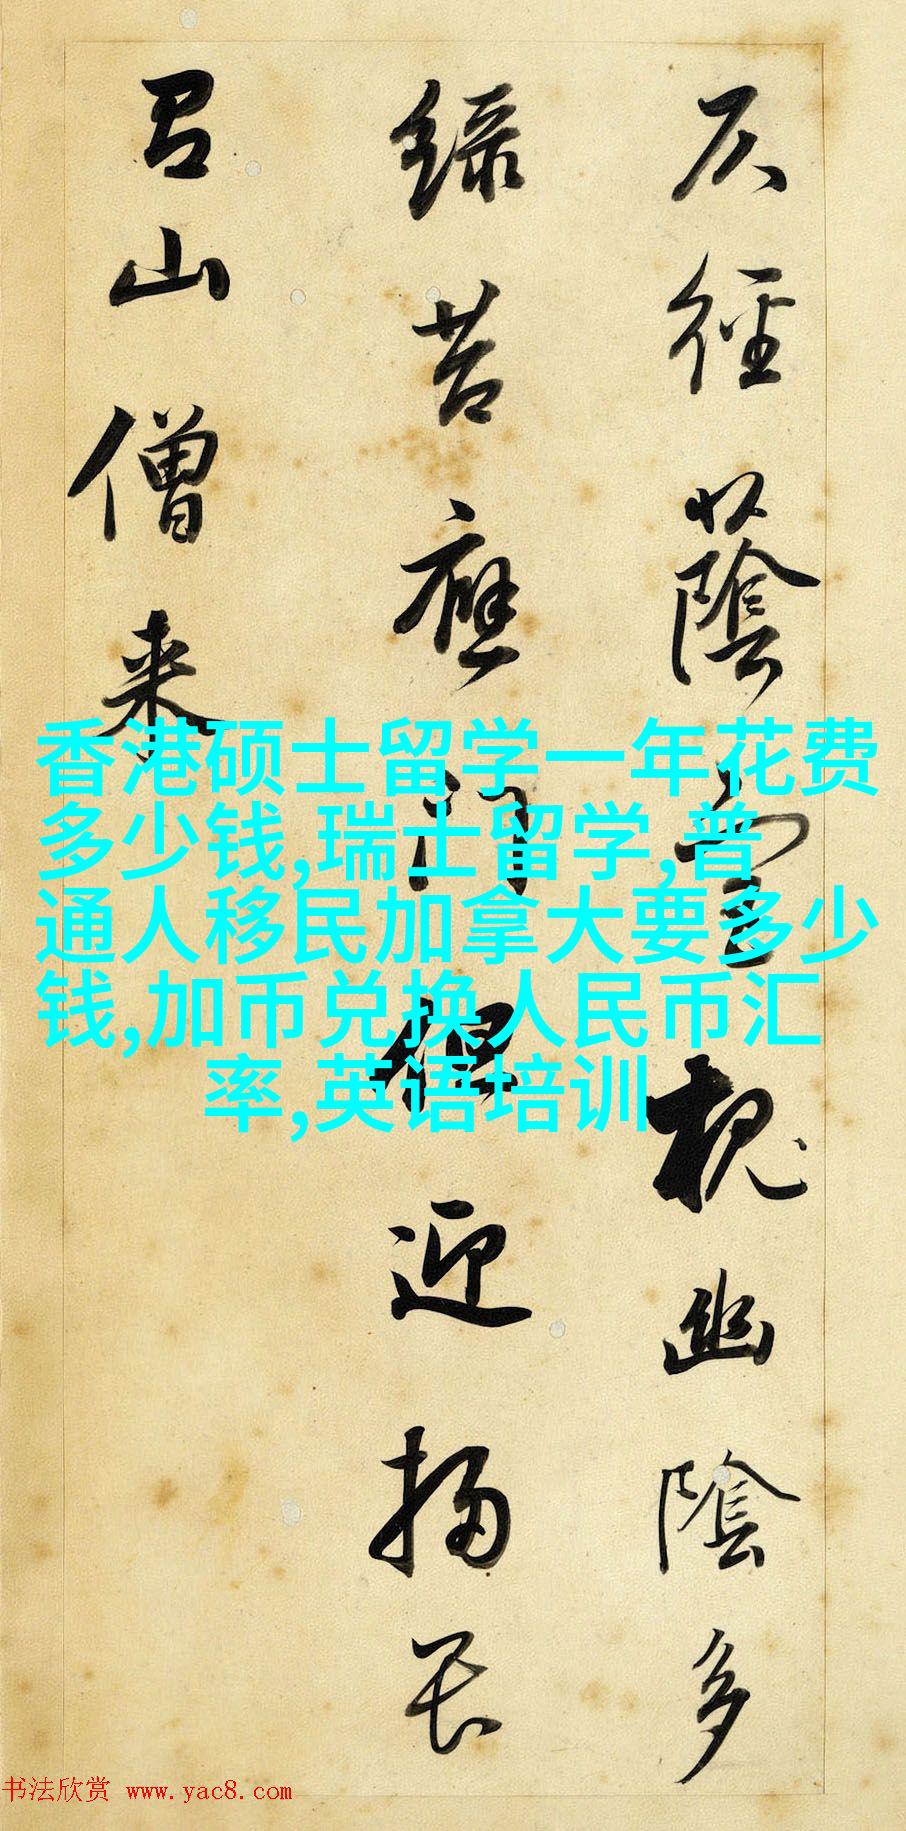 仄徑蔭宮槐幽陰多
綠苔應門但迎掃畏
有山僧来
香港硕士留学一年花费
多少钱,瑞士留学,普
通人移民加拿大要多少
钱,加币兑换人民币汇
率,英语培训
书法欣赏 www.yac8.com